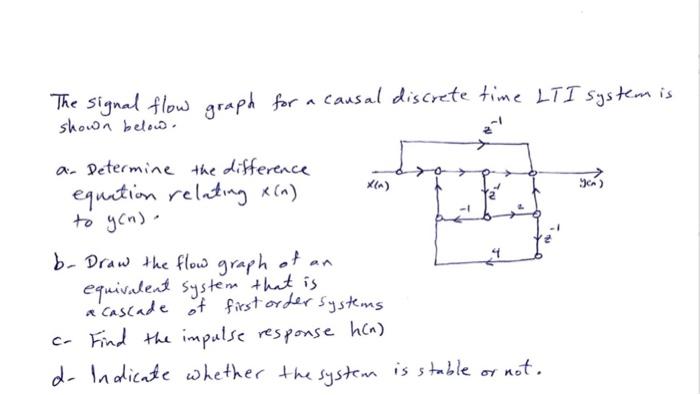 The signal flow graph for a causal discrete time LTI system is
shown below.
z⁻¹
a- Determine the difference
equation relating x(n)
to y(n).
x(n)
y(n)
z⁻¹
-1
2
z⁻¹
4
b- Draw the flow graph of an
equivalent system that is
a cascade of first order systems
c- Find the impulse response h(n)
d- Indicate whether the system is stable or not.